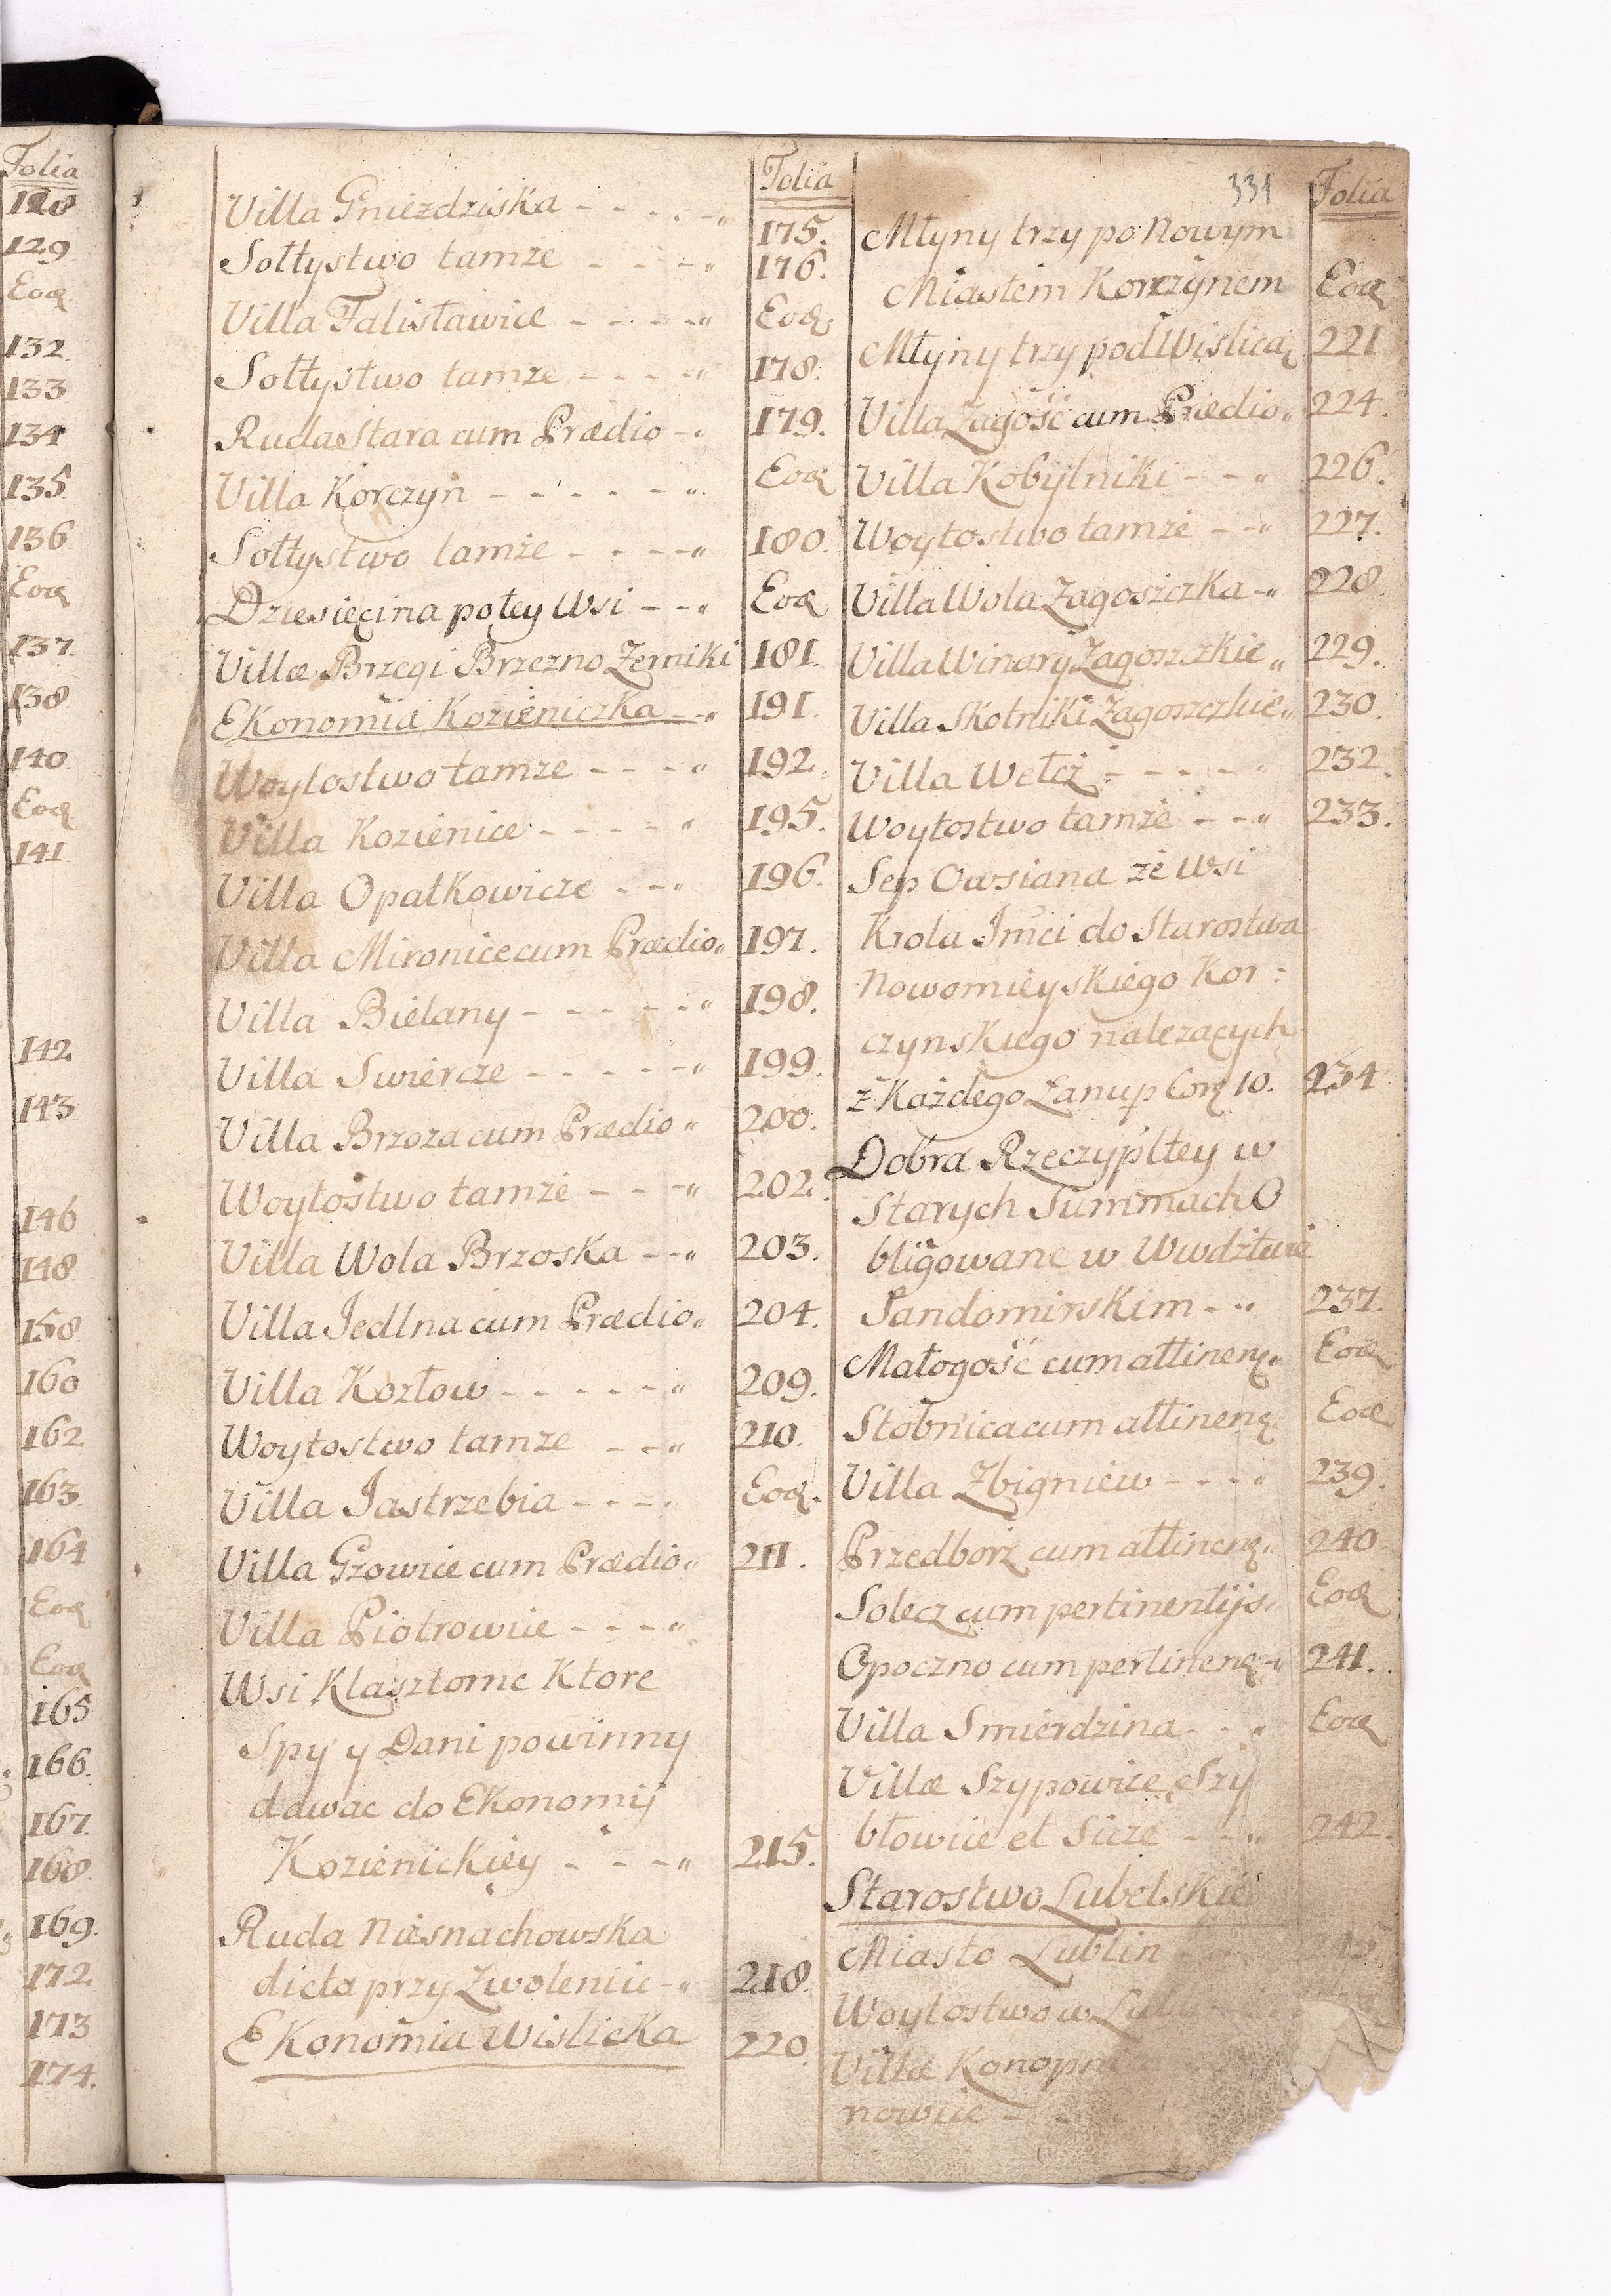 Folia
128
129
Eoq
132
133
134
135
136
Eoq
137
138
140
Eoq
141
142
143
146
148
158
160
162
163
164
Eoq
Eoq
165
166.
167
168
169.
172
173
174.
Folia
Villa Gniezdziska - - - - - „ 175.
Sołtystwo tamże - - - - „ 176.
Villa Falisławice - - - - „ Eoq.
Sołtystwo tamże - - - - „ 178.
Ruda Stara cum Prædio - „ 179.
Villa Korczyn - - - - - - „ Eoq
Sołtystwo tamże - - - - „ 180.
Dziesięcina po tey Wsi - - „ Eoq
Villæ Brzegi Brzezno Zerniki 181.
Ekonomia Kozieniczka - „ 191.
Woytostwo tamże - - - „ 192.
Villa Kozienice - - - - „ 195.
Villa Opatkowicze - - „ 196.
Villa Mironice cum Prædio „ 197.
Villa Bielany - - - - - - „ 198.
Villa Swiercze - - - - - „ 199.
Villa Brzoza cum Prædio „ 200.
Woytostwo tamże - - - „ 202.
Villa Wola Brzoska - - „ 203.
Villa Jedlna cum Prædio „ 204.
Villa Kozłow - - - - - - „ 209.
Woytostwo tamże - - „ 210.
Villa Jastrzebia - - - - Eoq.
Villa Grzowice cum Prædio „ 211.
Villa Piotrowice - - - - „
Wsi Klasztorne Ktore
Spy y Dani powinny
dawac do Ekonomij
Kozienickiey - - - „ 215.
Ruda Niesnachowska
dicta przy Zwoleniie - „ 218.
Ekonomia Wislicka 220.
331 Folia
Młyny trzy po Nowym
Miastem Korczynem Eoq
Młyny trzy pod Wislicą 221
Villa Zagość cum Prædio „ 224.
Villa Kobylniki - - „ 226.
Woytostwo tamże - - „ 227.
Villa Wola Zagosczka - „ 228
Villa Winary Zagoszczkie „ 229.
Villa Skotniki Zagoszczkie „ 230.
Villa Wełcz - - - - - „ 232.
Woytostwo tamże - - „ 233.
Sep Owsiana ze Wsi
Krola Jmci do Starostwa
Nowomieyskiego Kor :
czynskiego należących
z Każdego Łanu p Corq 10. 234
Dobra Rzeczypltey w
Starych Summach O
bligowane w Wwdztwie
Sandomirskim - „ 237.
Małogość cum attinenq „ Eoq
Stobnica cum attinenq Eoq
Villa Zbigniew - - - - „ 239.
Przedborz cum attinenq „ 240.
Solecz cum pertinentijs „ Eoq
Opoczno cum pertinenq - „ 241.
Villa Smierdzina - - „ Eoq
Villæ Szypowice Szy
błowice et Sicze - - „ 242.
Starostwo Lubelskie
Miasto Lublin
Woytostwo w Lub
Villæ Konopni
nowice - -